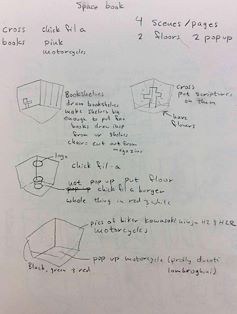 Space book
cross chick fil a
books pink
motorcycles
4 scenes/pages
2 floors 2 popup
Bookshelves
draw bookshelves
make shelves big
enough to put few
books draw shop
from ur shelves
chairs cut out from
magazine
cross
put scriptures
on them
have
floors
logo
chick fil-a
not pop up put flour
chick fil a burger
whole thing in red & white
pics of biker kawasaki ninja H2 & H2R
motorcycles
pop up motorcycle (prolly ducati
lambroghini)
Black, green & red